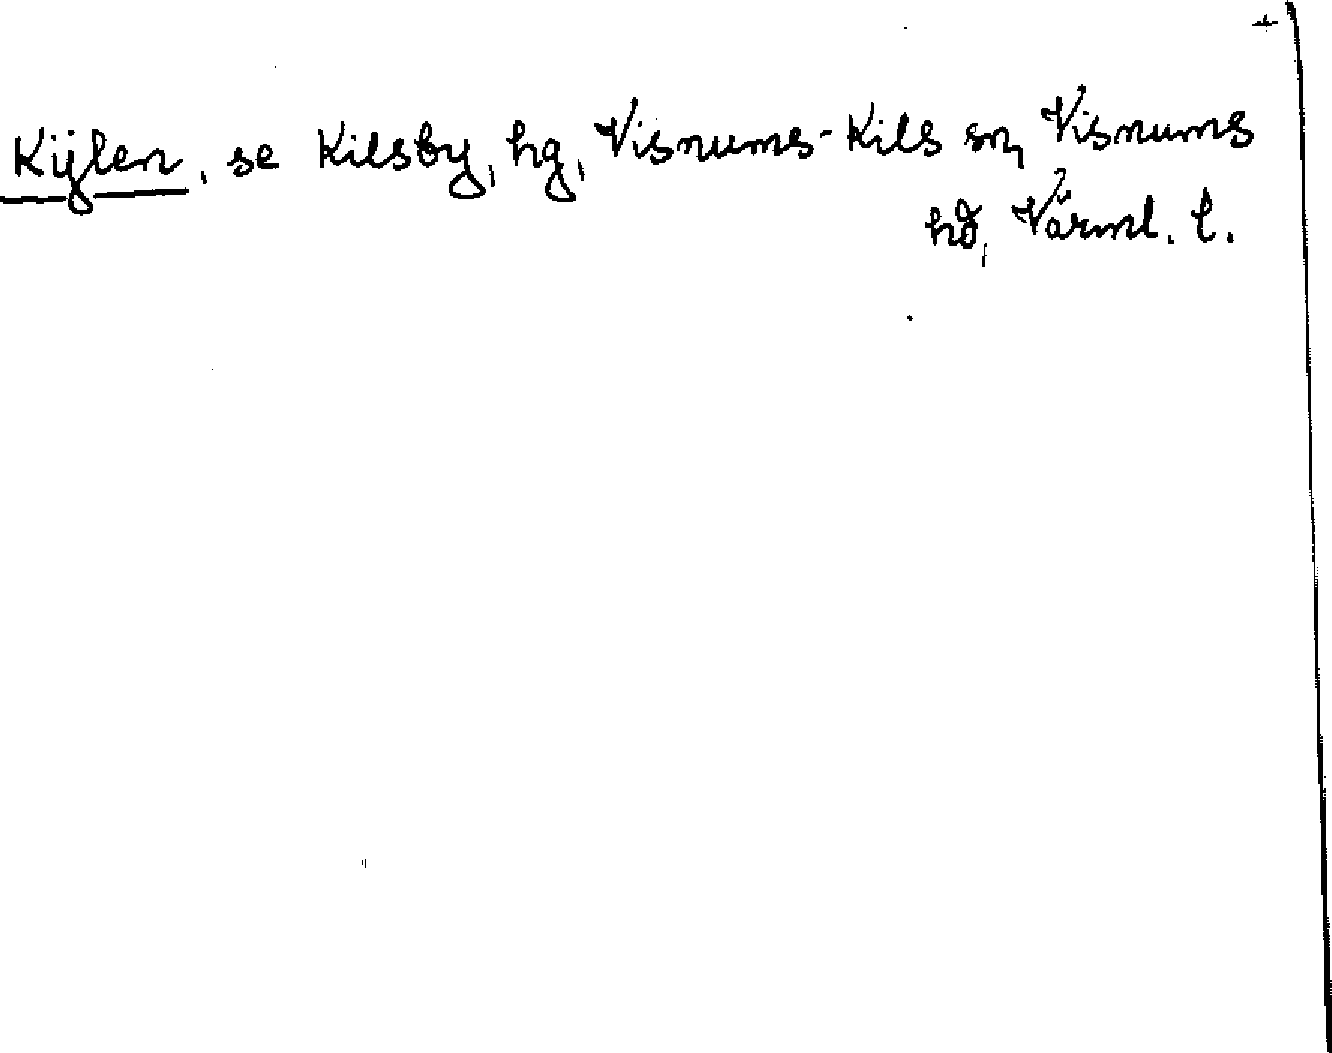 Kijlen, se Kilsby, hg, Visnums-Kils sn, Visnums
hd, Värml. l.